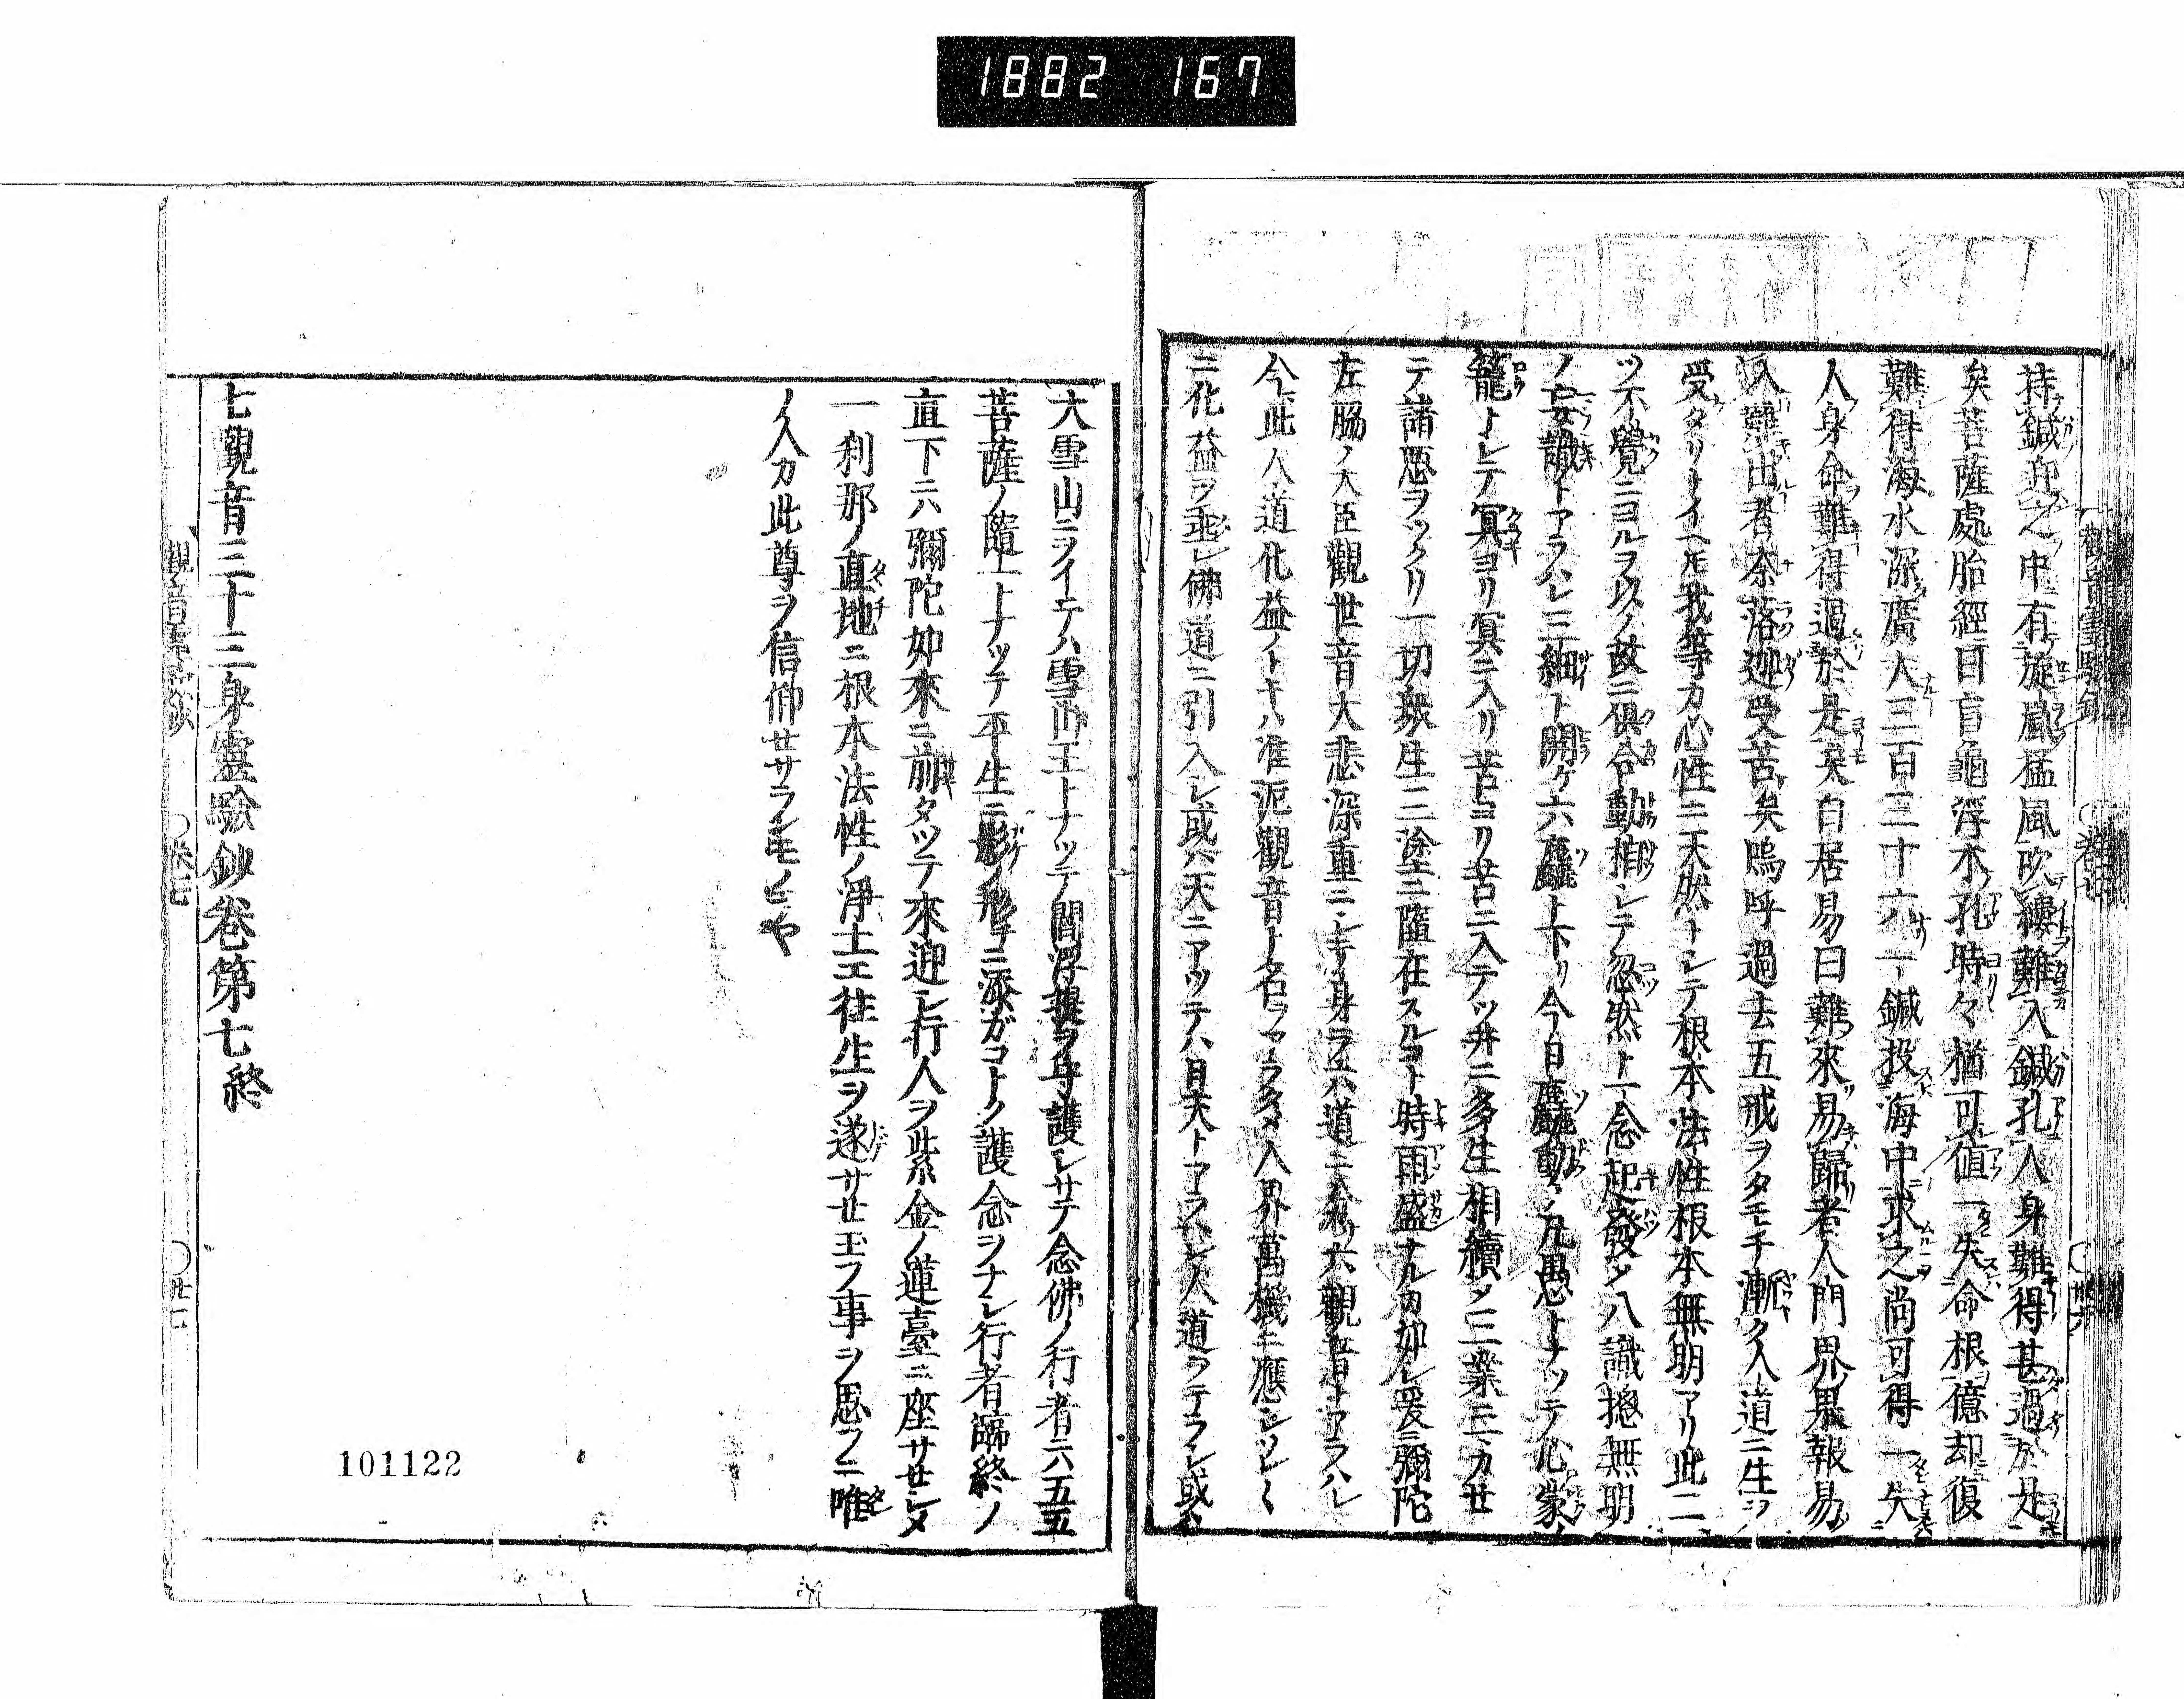 1882 167
持鍼迎之中有旋嵐猛風吹縷難入鍼孔人身難得甚過於是
矣菩薩處胎經曰盲龜浮木孔時々猶可値一失命根億却復
難得海水深廣大三百三十六一鍼投海中求之尚可得一失
人身命難得過於是矣白居易曰難來易歸者人門界果報易
入難出者奈落迦受苦矣嗚呼過去五戒ヲタモチ漸ク人道ニ生ヲ
受タリトイヘ𪜈我等カ心性ニ天然トシテ根本法性根本無明アリ此二
ツ不覺ニヨルヲ以ノ故ニ俱合動相シテ忽然ト一念起發メ八識摠無明
ノ妄識トアラハレ三細ト開ケ六麤ト下リ今日麤動ノ凡愚トナツテ心蒙
籠トシテ冥ヨリ冥ニ入リ苦ヨリ苦ニ入テツ井ニ多生相續メ三業ニカセ
テ諸惡ヲツクリ一切衆生三塗ニ墮在スルコト時雨盛ナルカ如シ爰ニ彌陀
左脇ノ大臣觀世音大悲深重ニシテ身ヲ六道ニ分ケ六觀音トアラハレ
今此人道化益ノトキハ准泥觀音ト名ヲ人界萬機ニ應シ
ニ化益ヲ垂レ佛道ニ引入レ或ハ天ニアツテハ日天トアラハレ人道ヲテラシ或ハ
大雪山ニヲイテハ雪山王トナツテ閻浮提ヲ守護シサテ念佛ノ行者ニハ五五
菩薩ノ隨一トナツテ平生ニ影ノ形チニ添ガコトク護念ヲナシ行者臨終ノ
直下ニハ彌陀如來ニ前タツテ來迎シ行人ヲ紫金ノ蓮臺ニ座サセシメ
一刹那ノ直地ニ根本法性ノ淨土エ往生ヲ遂サセ玉フ事ヲ思フニ唯
ノ人カ此尊ヲ信仰セサランモノヒヤ
七觀音三十三身靈驗鈔卷第七終
101122